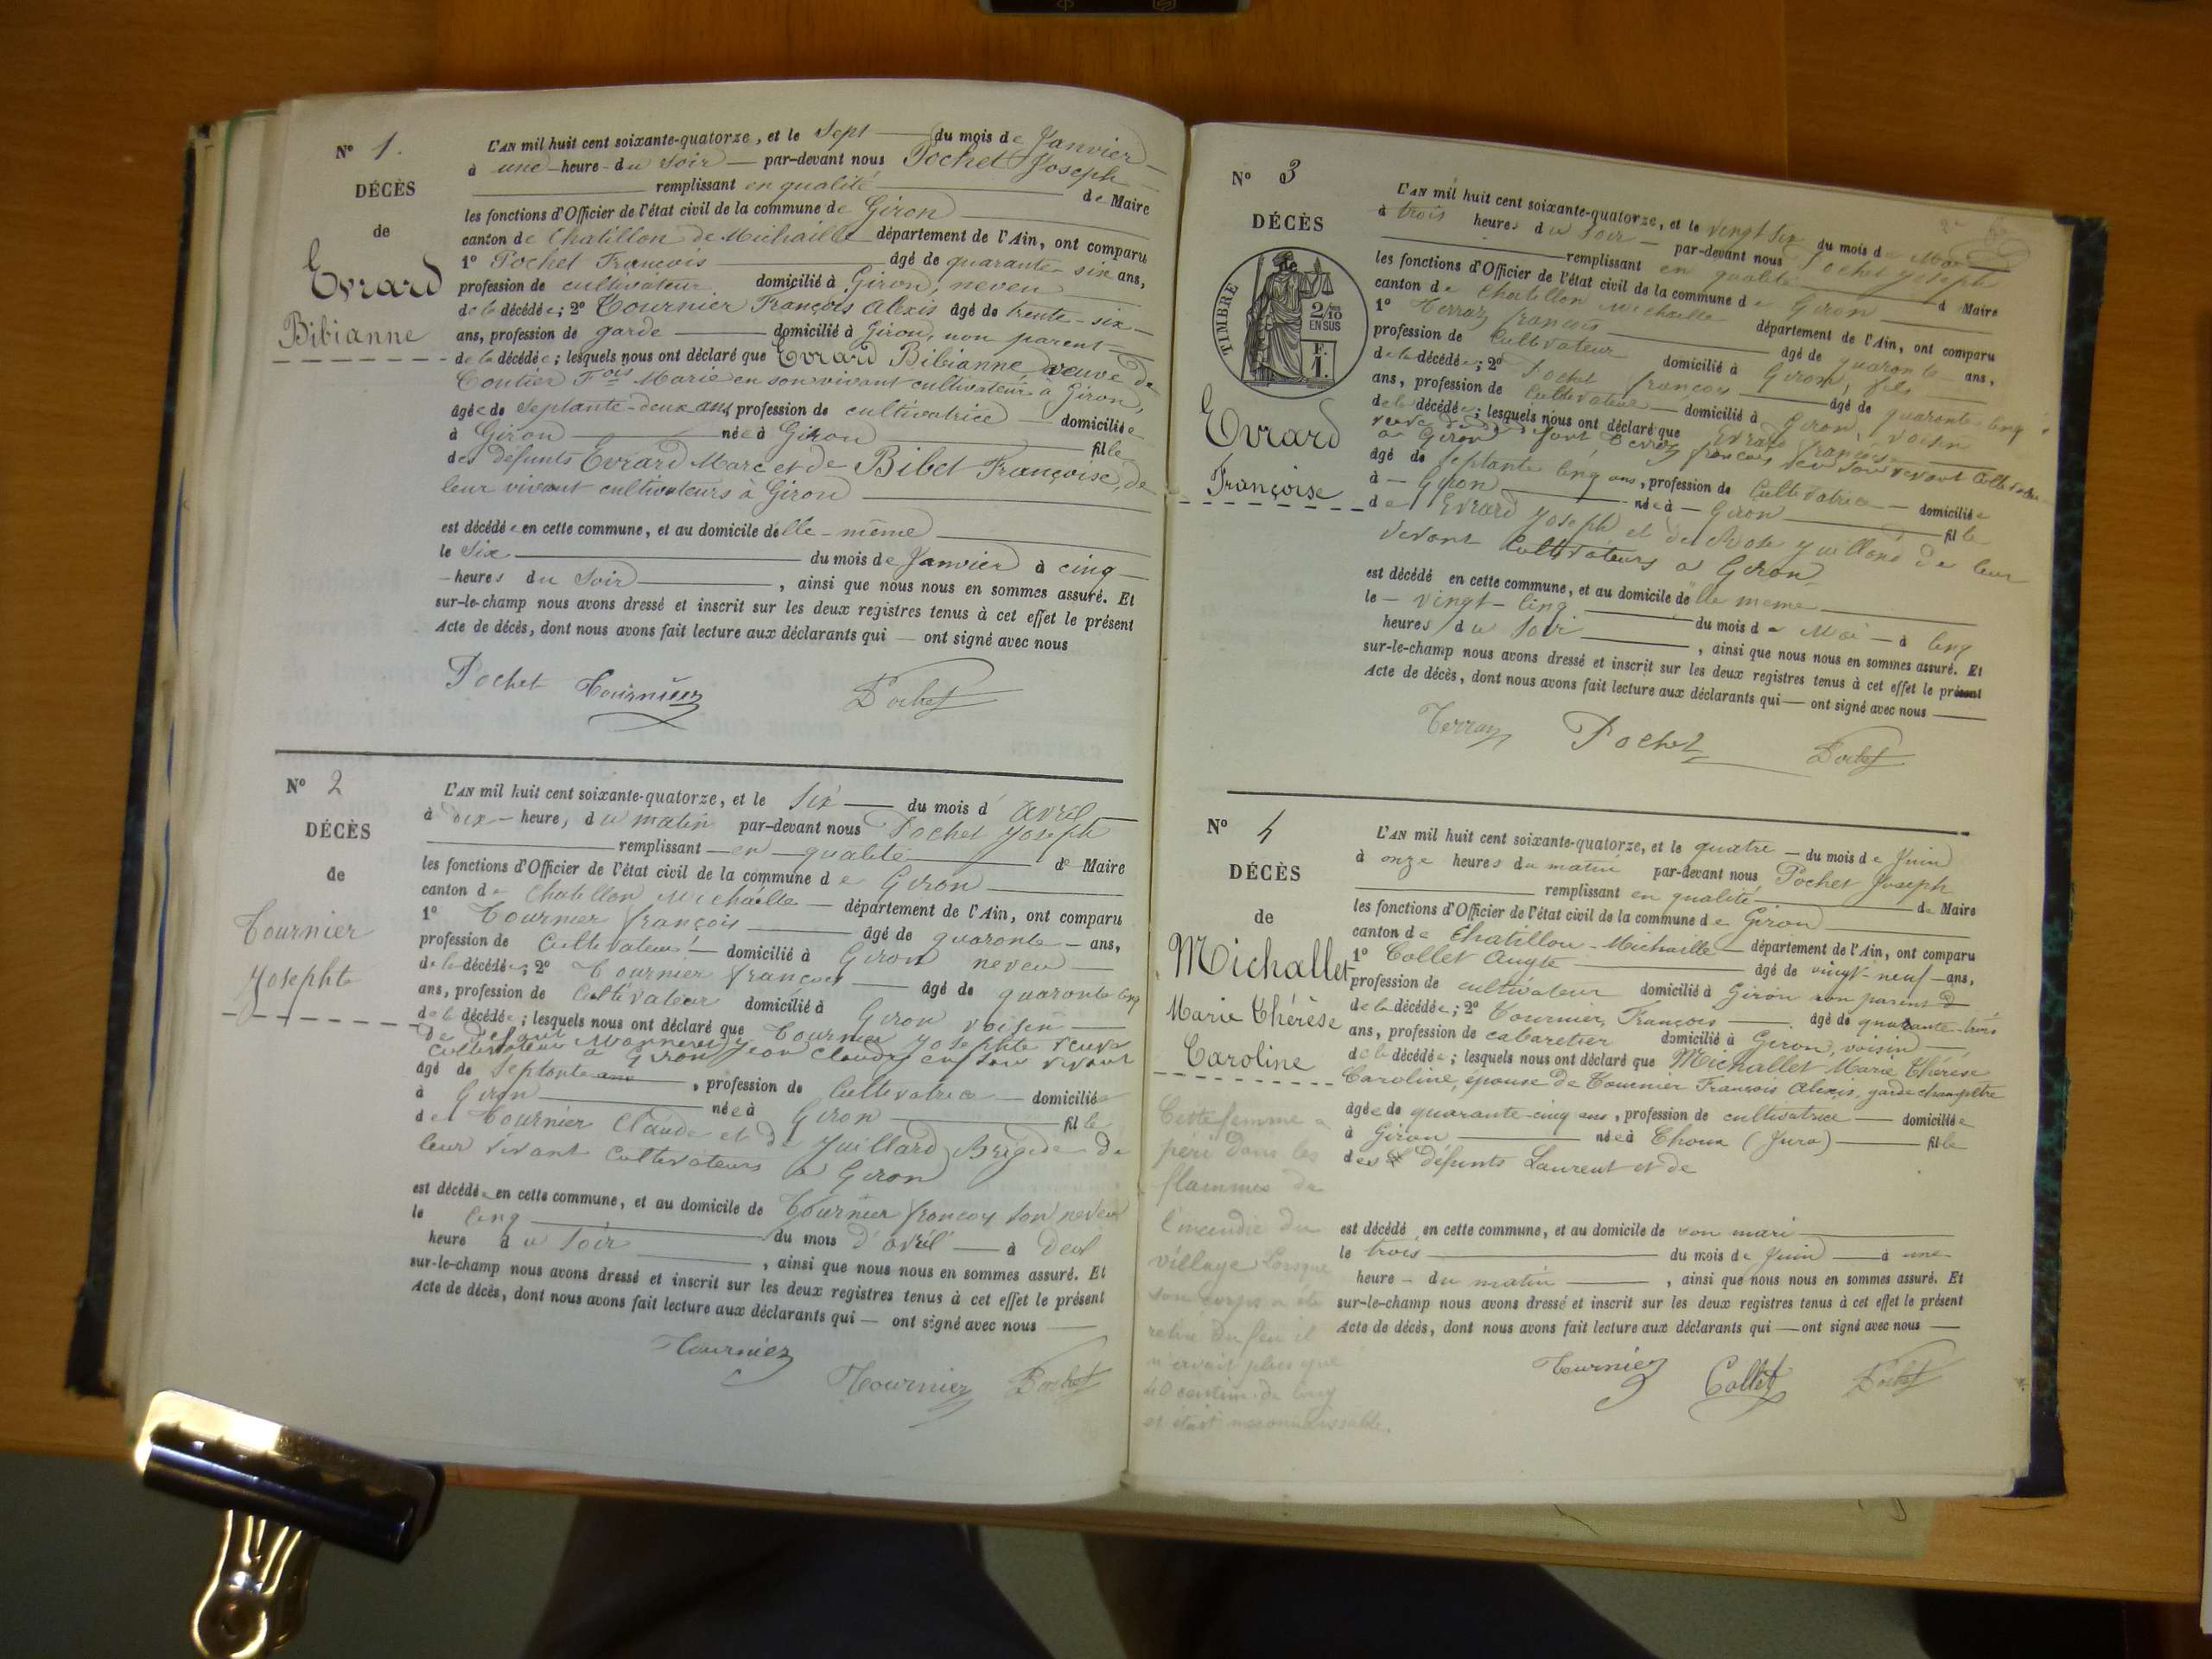 N° 1.
DÉCÈS
de
Evrard
Bibianne
L'AN mil huit cent soixante-quatorze, et le sept du mois de Janvier
à une heure du soir par-devant nous Pochet Joseph
remplissant en qualité de Maire
les fonctions d'Officier de l'état civil de la commune de Giron
canton de Chatillon de Michaille département de l'Ain, ont comparu
1° Pochet François âgé de quarante-six ans,
profession de cultivateur domicilié à Giron, neveu
de la décédée; 2° Tournier François Alexis âgé de trente-six
ans, profession de garde domicilié à Giron, non parent
de la décédée; lesquels nous ont déclaré que Evrard Bibianne, veuve de
Coutier Fois Marie en son vivant cultivateur à Giron,
âgée de septante-deux ans, profession de cultivatrice domiciliée
à Giron née à Giron fille
des défunts Evrard Marc et de Bibet Françoise, de
leur vivant cultivateurs à Giron
est décédée en cette commune, et au domicile d'elle-même
le six du mois de Janvier à cinq
heures du soir, ainsi que nous nous en sommes assuré. Et
sur-le-champ nous avons dressé et inscrit sur les deux registres tenus à cet effet le présent
Acte de décès, dont nous avons fait lecture aux déclarants qui ont signé avec nous
Pochet Tournier Pochet
N° 2
DÉCÈS
de
Tournier
Josephte
L'AN mil huit cent soixante-quatorze, et le six du mois d'avril
à dix heures du matin par-devant nous Pochet Joseph
remplissant en qualité de Maire
les fonctions d'Officier de l'état civil de la commune de Giron
canton de Chatillon Michaille département de l'Ain, ont comparu
1° Tournier françois âgé de quarante ans,
profession de Cultivateur domicilié à Giron neveu
de la décédée; 2° Tournier françois âgé de quarante cinq
ans, profession de Cultivateur domicilié à Giron voisin
de la décédée; lesquels nous ont déclaré que Tournier Josephte veuve
de défunt Jean Claude en son vivant
Cultivateur à Giron
âgé de Septante ans, profession de Cultivatrice domiciliée
à Giron née à Giron fille
de Tournier Claude et de Juillard Brigide de
leur vivant Cultivateurs à Giron
est décédée en cette commune, et au domicile de Tournier françois son neveu
le cinq du mois d'avril à deux
heure du soir, ainsi que nous nous en sommes assuré. Et
sur-le-champ nous avons dressé et inscrit sur les deux registres tenus à cet effet le présent
Acte de décès, dont nous avons fait lecture aux déclarants qui ont signé avec nous
Tournier
Tournier Pochet
N° 3
DÉCÈS
TIMBRE
2/10
EN SUS
F.
1.
Evrard
Françoise
L'AN mil huit cent soixante-quatorze, et le vingt six du mois de Mai
à trois heures du soir par-devant nous Pochet Joseph
remplissant en qualité d Maire
les fonctions d'Officier de l'état civil de la commune de Giron
canton de Chatillon Michaille département de l'Ain, ont comparu
1° Terraz françois âgé de quarante ans,
profession de Cultivateur domicilié à Giron, fils
de la décédée; 2° Pochet françois âgé de quarante cinq
ans, profession de Cultivateur domicilié à Giron, voisin
de la décédée; lesquels nous ont déclaré que Evrard françoise
veuve de défunt Terraz françois de son vivant Cultivateur
à Giron
âgé de Septante cinq ans, profession de Cultivatrice domiciliée
à Giron née à Giron fille
de Evrard Joseph et de Rose Juillard de leur
vivant Cultivateurs à Giron
est décédé en cette commune, et au domicile d'elle même
le vingt-cinq du mois de Mai à cinq
heures du soir, ainsi que nous nous en sommes assuré. Et
sur-le-champ nous avons dressé et inscrit sur les deux registres tenus à cet effet le présent
Acte de décès, dont nous avons fait lecture aux déclarants qui ont signé avec nous
Terraz Pochet Pochet
N° 4
DÉCÈS
de
Michallet
Marie Thérèse
Caroline
Cette femme a
péri dans les
flammes de
l'incendie du
village Lorsque
son corps a été
retiré du feu il
n'avait plus que
40 centim. de long
et était méconnaissable.
L'AN mil huit cent soixante-quatorze, et le quatre du mois de Juin
à onze heures du matin par-devant nous Pochet Joseph
remplissant en qualité de Maire
les fonctions d'Officier de l'état civil de la commune de Giron
canton de Chatillon-Michaille département de l'Ain, ont comparu
1° Collet Augte âgé de vingt-neuf ans,
profession de cultivateur domicilié à Giron non parent
de la décédée; 2° Tournier, François âgé de quarante-trois
ans, profession de cabaretier domicilié à Giron, voisin
de la décédée; lesquels nous ont déclaré que Michallet Marie Thérèse
Caroline, épouse de Tournier François Alexis, garde champêtre
âgée de quarante-cinq ans, profession de cultivatrice domiciliée
à Giron née à Choux (Jura) fille
des défunts Laurent et de
est décédé en cette commune, et au domicile de son mari
le trois du mois de Juin à une
heure du matin, ainsi que nous nous en sommes assuré. Et
sur-le-champ nous avons dressé et inscrit sur les deux registres tenus à cet effet le présent
Acte de décès, dont nous avons fait lecture aux déclarants qui ont signé avec nous
Tournier Collet Pochet